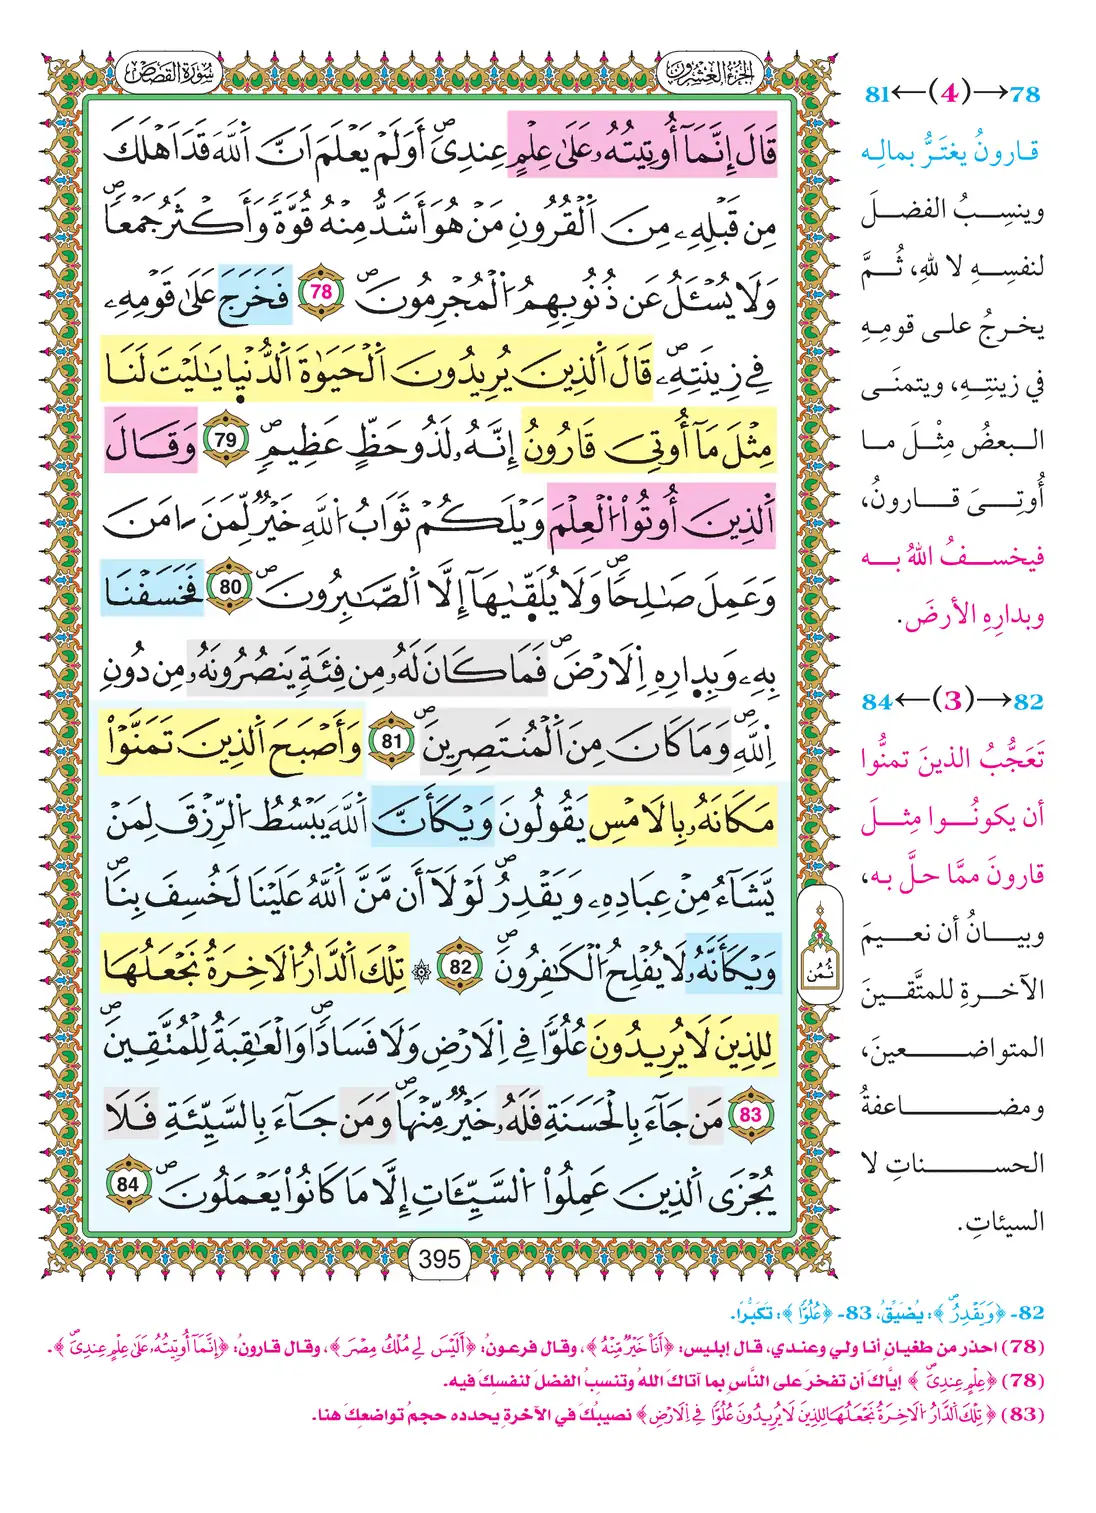 سُورَةُ القَصَصِ
الجُزءُ العِشرُونَ
قَالَ إِنَّمَآ أُوتِيتُهُۥ عَلَىٰ عِلْمٍ عِندِيَ أَوَلَمْ يَعْلَمَ اَنَّ اَللَّهَ قَدَ اَهْلَكَ
مِن قَبْلِهِۦ مِنَ اَلْقُرُونِ مَنْ هُوَ أَشَدُّ مِنْهُ قُوَّةً وَأَكْثَرُ جَمْعاً
وَلَا يُسْـَٔلُ عَن ذُنُوبِهِمُ اُلْمُجْرِمُونَ 78 فَخَرَجَ عَلَىٰ قَوْمِهِۦ
فِي زِينَتِهِۦ قَالَ اَلذِينَ يُرِيدُونَ اَلْحَيَوٰةَ اَلدُّنْيا يَٰلَيْتَ لَنَا
مِثْلَ مَآ أُوتِيَ قَٰرُونُ إِنَّهُۥ لَذُو حَظٍّ عَظِيمٍ 79 وَقَالَ
اَلذِينَ أُوتُواْ اُلْعِلْمَ وَيْلَكُمْ ثَوَابُ اُللَّهِ خَيْرٌ لِّمَنَ ـ اٰمَنَ
وَعَمِلَ صَٰلِحاً وَلَا يُلَقّىٰهَآ إِلَّا اَلصَّٰبِرُونَ 80 فَخَسَفْنَا
بِهِۦ وَبِدارِهِ اِلَارْضَ فَمَا كَانَ لَهُۥ مِن فِئَةٍ يَنصُرُونَهُۥ مِن دُونِ
اِللَّهِ وَمَا كَانَ مِنَ اَلْمُنتَصِرِينَ 81 وَأَصْبَحَ اَلذِينَ تَمَنَّوْاْ
مَكَانَهُۥ بِالَامْسِ يَقُولُونَ وَيْكَأَنَّ اَللَّهَ يَبْسُطُ اُلرِّزْقَ لِمَنْ
يَّشَآءُ مِنْ عِبَادِهِۦ وَيَقْدِرُ لَوْلَآ أَن مَّنَّ اَللَّهُ عَلَيْنَا لَخُسِفَ بِنَا
وَيْكَأَنَّهُۥ لَا يُفْلِحُ اُلْكَٰفِرُونَ 82 ۞ تِلْكَ اَلدَّارُ اُلَاخِرَةُ نَجْعَلُهَا
لِلذِينَ لَا يُرِيدُونَ عُلُوّاً فِي اِلَارْضِ وَلَا فَسَاداً وَالْعَٰقِبَةُ لِلْمُتَّقِينَ
83 مَن جَآءَ بِالْحَسَنَةِ فَلَهُۥ خَيْرٌ مِّنْهَا وَمَن جَآءَ بِالسَّيِّئَةِ فَلَا
يُجْزَى اَلذِينَ عَمِلُواْ اُلسَّيِّـَٔاتِ إِلَّا مَا كَانُواْ يَعْمَلُونَ 84
ثُمُن
395
78→(4)←81
قارونُ يغتَرُّ بمالِه
وينسِبُ الفضلَ
لنفسِهِ لا للهِ، ثُمَّ
يخرجُ على قومِهِ
في زينتِهِ، ويتمنَى
البعضُ مِثْلَ ما
أُوتِىَ قارونُ،
فيخسفُ اللهُ به
وبدارِهِ الأرضَ.
82→(3)←84
تَعَجُّبُ الذينَ تمنُّوا
أن يكونُوا مِثلَ
قارونَ ممَّا حلَّ به،
وبيانُ أن نعيمَ
الآخرةِ للمتَّقينَ
المتواضعينَ،
ومضاعفةُ
الحسناتِ لا
السيئاتِ.
82- ﴿وَيَقْدِرُ﴾: يُضَيِّقُ، 83- ﴿عُلُوّاً﴾: تَكَبُّرًا.
(78) احذر من طغيانِ أنا ولي وعندي، قال إبليس: ﴿أَنَا خَيْرٌ مِّنْهُ﴾، وقال فرعونُ: ﴿أَلَيْسَ لِي مُلْكُ مِصْرَ﴾، وقال قارونُ: ﴿إِنَّمَآ أُوتِيتُهُۥ عَلَىٰ عِلْمٍ عِندِيَ﴾.
(78) ﴿عِلْمٍ عِندِيَ﴾ إيَّاكَ أن تفخرَ على النَّاسِ بما آتاكَ اللهُ وتنسبُ الفضلَ لنفسِكَ فيه.
(83) ﴿تِلْكَ اَلدَّارُ اُلَاخِرَةُ نَجْعَلُهَا لِلذِينَ لَا يُرِيدُونَ عُلُوّاً فِي اِلَارْضِ﴾ نصيبُكَ في الآخرةِ يحدده حجمُ تواضعِكَ هنا.